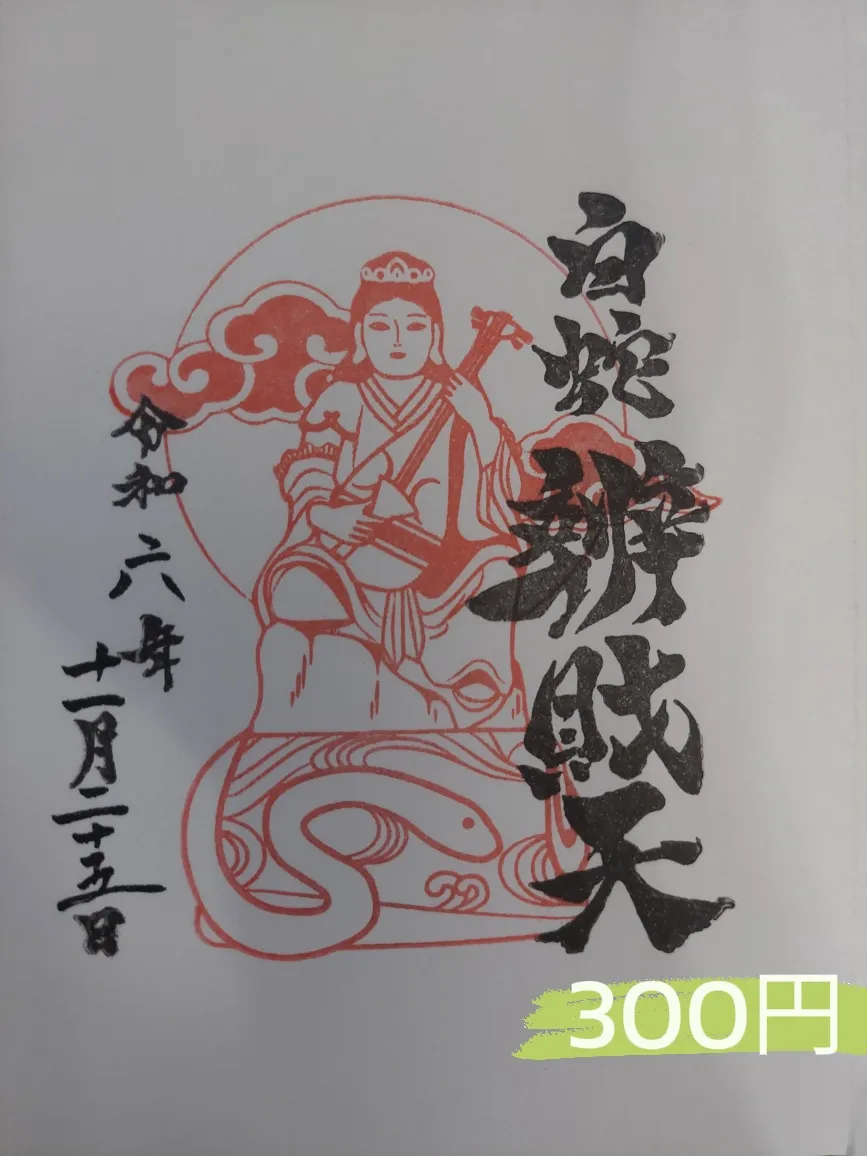 白蛇辨財天
令和六年
十一月二十五日
300円